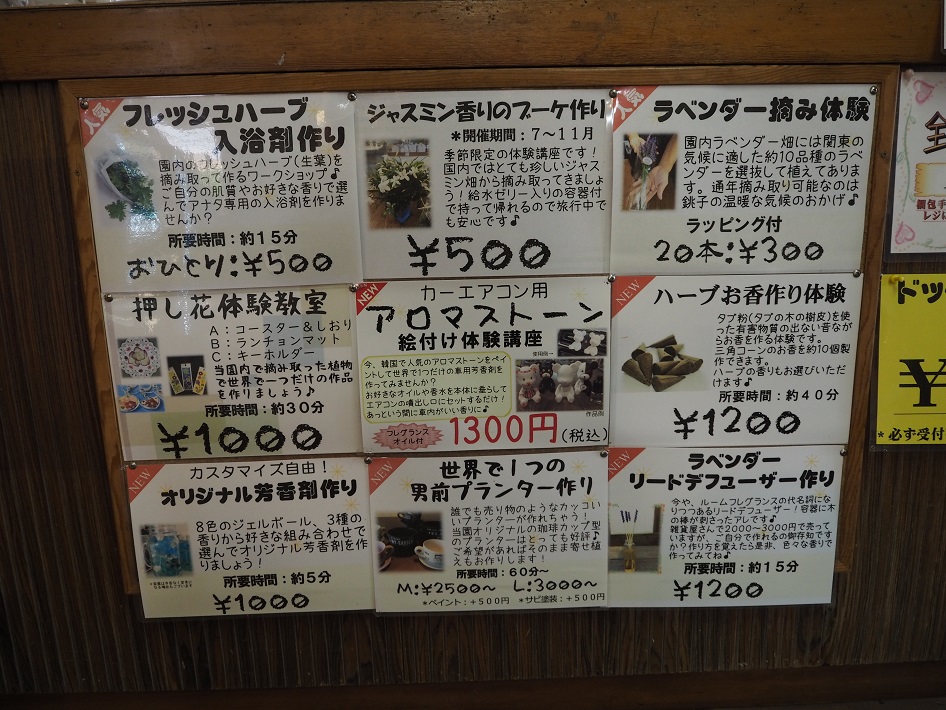 人気
フレッシュハーブ
入浴剤作り
園内のフレッシュハーブ(生葉)を
摘み取って作るワークショップ♪
ご自分の肌質やお好きな香りで選
んでアナタ専用の入浴剤を作りま
せんか?
所要時間:約15分
おひとり:¥500
ジャスミン香りのブーケ作り
*開催期間:7~11月
季節限定の体験講座です!
国内ではとても珍しいジャス
ミン畑から摘み取ってきまし
ょう!給水ゼリー入りの容器付
で持って帰れるので旅行中で
も安心です♪
¥500
人気
ラベンダー摘み体験
園内ラベンダー畑には関東の
気候に適した約10品種のラベ
ンダーを選抜して植えてありま
す。通年摘み取り可能なのは
銚子の温暖な気候のおかげ♪
ラッピング付
20本:¥300
押し花体験教室
A:コースター&しおり
B:ランチョンマット
C:キーホルダー
当園内で摘み取った植物
で世界で一つだけの作品
を作りましょう♪
所要時間:約30分
¥1000
NEW
カーエアコン用
アロマストーン
絵付け体験講座
今、韓国で人気のアロマストーンをペイ
ントして世界で1つだけの車用芳香剤を
作ってみませんか?
お好きなオイルや香水を本体に垂らして
エアコンの噴出し口にセットするだけ!
あっという間に車内がいい香りに♪
使用例→
作品例
フレグランス
オイル付
1300円(税込)
NEW
ハーブお香作り体験
タブ粉(タブの木の樹皮)を使
った有害物質の出ない昔なが
らお香を作る体験です。
三角コーンのお香を約10個製
作できます。
ハーブの香りもお選びいただ
けます♪
所要時間:約40分
¥1200
NEW
カスタマイズ自由!
オリジナル芳香剤作り
8色のジェルボール、3種の
香りから好きな組み合わせで
選んでオリジナル芳香剤を作
りましょう!
所要時間:約5分
¥1000
NEW
世界で1つの
男前プランター作り
誰でも売り物のようなカッコい
いプランターが作れちゃう!
当園オリジナルの珈琲カップ型
のプランターはとっても好評♪
ご希望があればそのまま寄せ植
えもお作りします!
所要時間:60分~
M:¥2500~ L:3000~
*ペイント:+500円 *サビ塗装:+500円
NEW
ラベンダー
リードデフューザー作り
今や、ルームフレグランスの代名詞にな
りつつあるリードデフューザー!容器に木
の棒が刺さったアレです♪
雑貨屋さんで2000~3000円で売って
いますが、ご自分で作れるの御存知です
か?作り方を覚えたら是非、色々な香りで
作ってみてね♪
所要時間:約15分
¥1200
ドッ
¥
*必ず受付